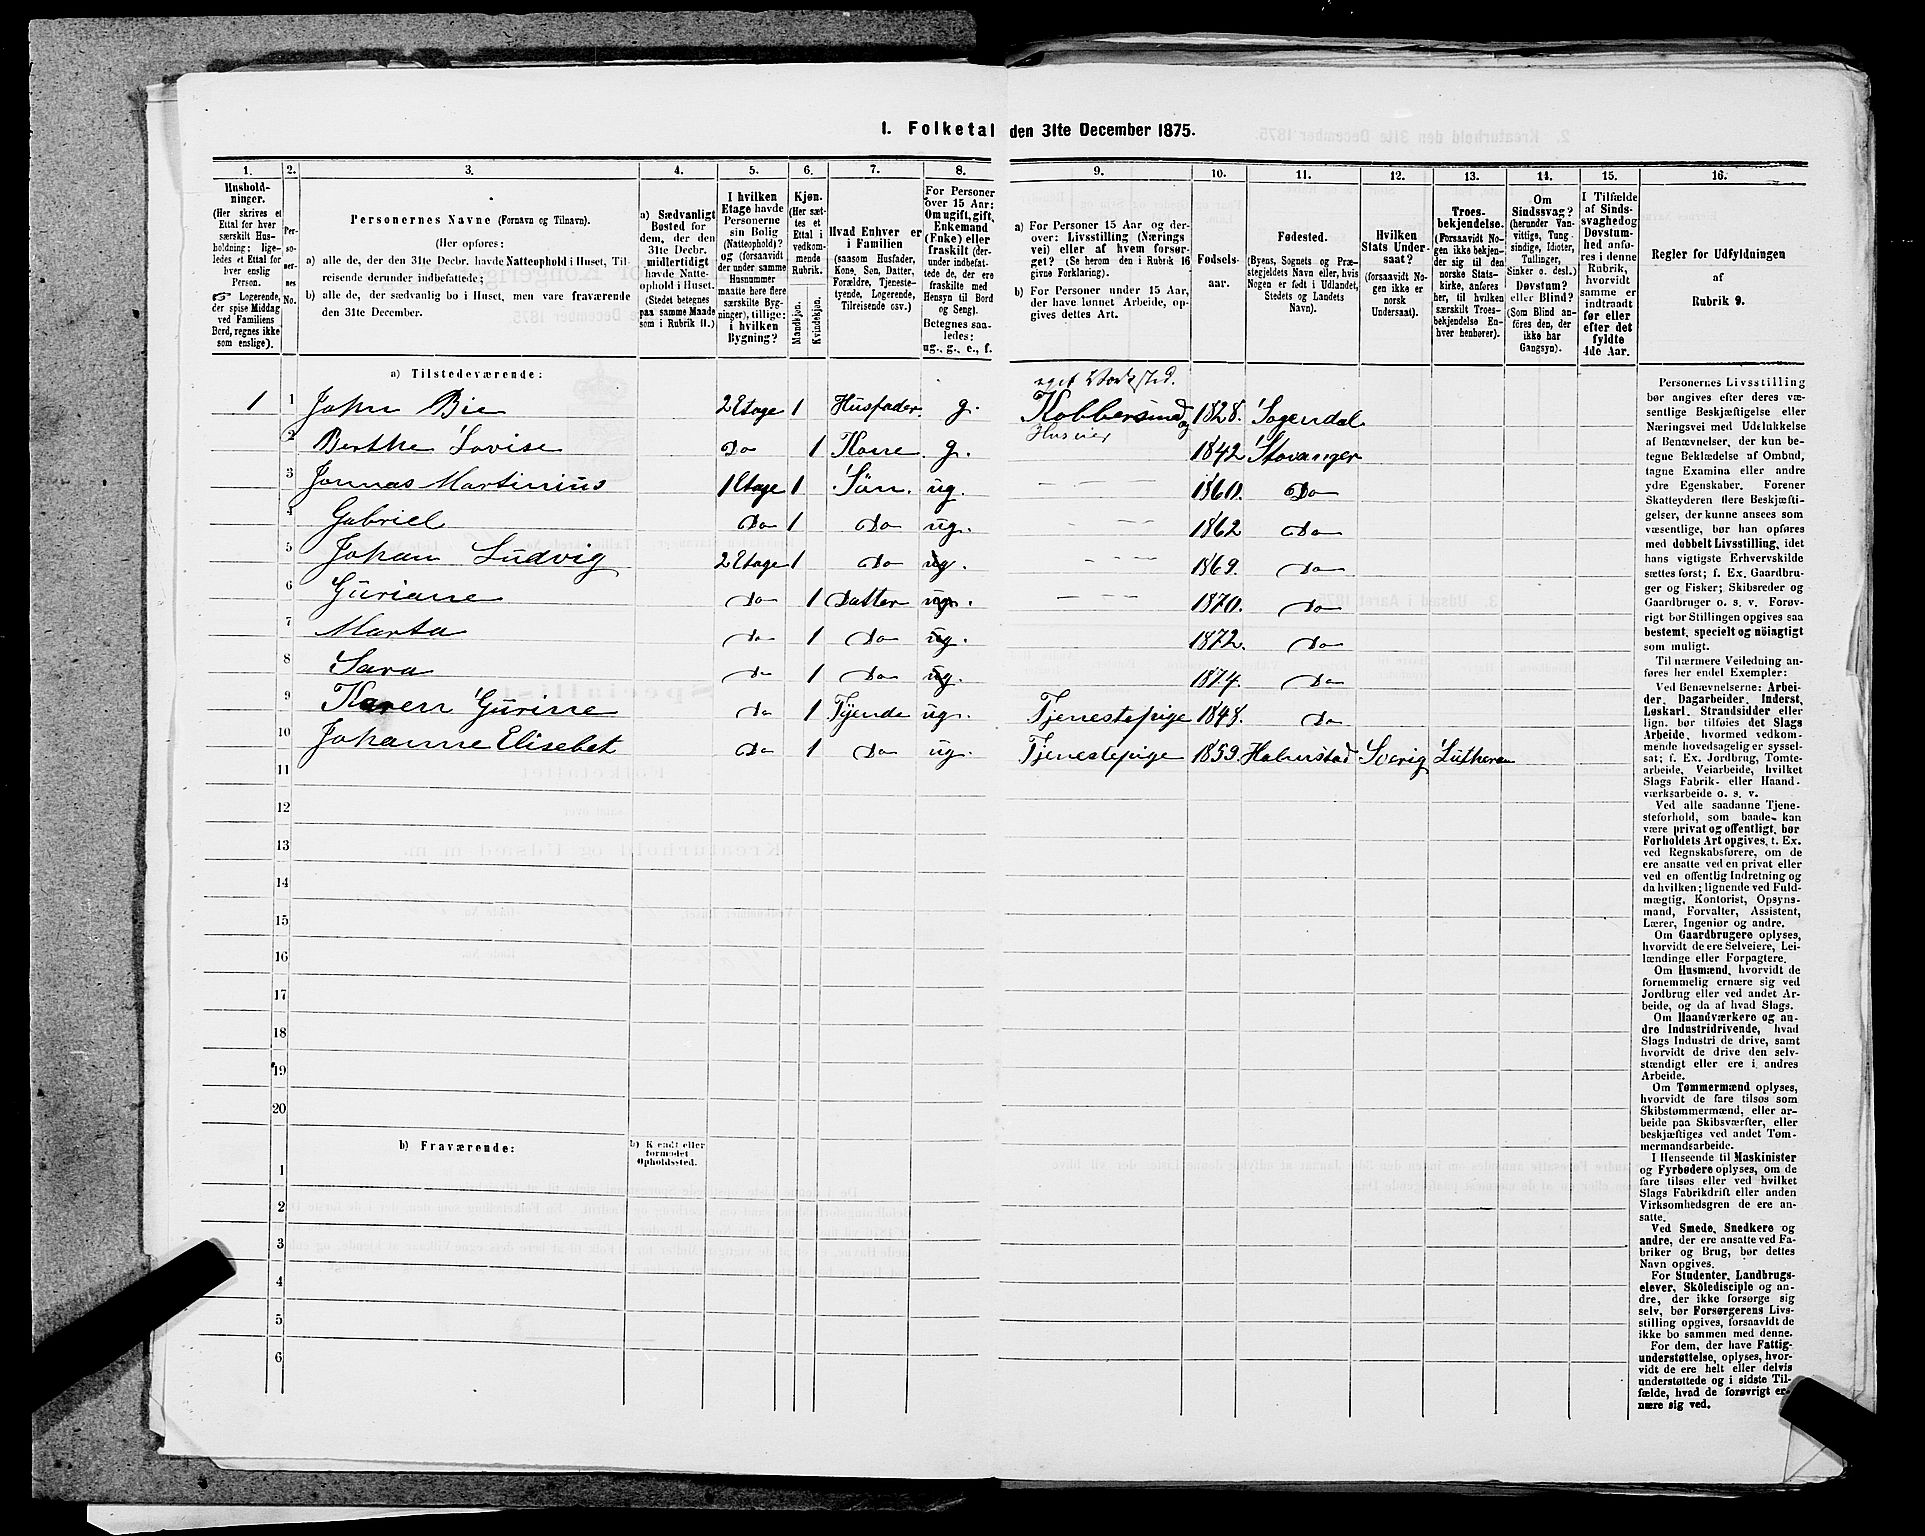 1. Folketal den 31te December 1875.
1. 2. 3. 4. 5. 6. 7. 8. 9. 10. 11. 12. 13. 14. 15. 16.
Hushold-
ninger.
(Her skrives et
Ettal for hver
særskilt Hus-
holdning; lige-
ledes et Ettal for
hver enslig
Person.
☞ Logerende,
der spise Middag
ved Familiens
Bord, regnes ikke
som enslige).
Per-
so-
ner-
nes
No.
Personernes Navne (Fornavn og Tilnavn).
(Her opføres:
a) alle de, der den 31te Decbr. havde Natteophold i Huset, Til-
reisende derunder indbefattede;
b) alle de, der sædvanlig bo i Huset, men vare fraværende
den 31te December.
a) Sædvanligt
Bosted for
dem, der den
31te Decbr.
midlertidigt
havde Natte-
ophold i Huset.
(Stedet betegnes
paa samme Maade
som i Rubrik 11.)
I hvilken
Etage havde
Personerne
sin Bolig
(Natteophold)?
og (forsaavidt
der under samme
Husnummer
maatte høre flere
særskilte Byg-
ninger), tillige:
i hvilken
Bygning?
Kjøn.
(Her sæt-
tes et
Ettal i
vedkom-
mende
Rubrik.
Mandkjøn.
Kvindekjøn.
Hvad Enhver er
i Familien
(saasom Husfader,
Kone, Søn, Datter,
Forældre, Tjeneste-
tyende, Logerende,
Tilreisende osv.)
For Personer
over 15 Aar:
Om ugift, gift,
Enkemand
(Enke) eller
fraskilt (der-
under indbefat-
tede de, der ere
fraskilte med
Hensyn til Bord
og Seng).
Betegnes saa-
ledes:
ug., g., e., f.
a) For Personer 15 Aar og der-
over: Livsstilling (Nærings
vei) eller af hvem forsør-
get? (Se herom den i Rubrik 16
givne Forklaring).
b) For Personer under 15 Aar,
der have lønnet Arbeide, op-
gives dettes Art.
Fødsels-
aar.
Fødested.
(Byens, Sognets og Præ-
stegjeldets Navn eller, hvis
Nogen er født i Udlandet,
Stedets og Landets
Navn).
Hvilken
Stats Under-
saat?
(forsaavidt No-
gen ikke er
norsk
Undersaat).
Troes-
bekjendelse.
(Forsaavidt No-
gen ikke bekjen-
der sig til den
norske Stats-
kirke, anføres
her, til hvilken
særskilt Troes-
bekjendelse En-
hver henhører).
Om
Sindssvag?
(herunder Van-
vittige, Tung
sindige, Idioter,
Tullinger,
Sinker o. desl.)
Døvstum?
eller Blind?
(Som Blind an-
føres den, der
ikke har
Gangsyn).
I Tilfælde
af Sinds-
svaghed og
Døvstum-
hed anfø-
res i denne
Rubrik,
hvorvidt
samme er
indtraadt
før eller
efter det
fyldte
4de Aar.
Regler for Udfyldningen
af
Rubrik 9.
a) Tilstedeværende:
eget Værksted.
1 1 John Bie 2 Etage 1 Husfader g. Kobbersmed og 1828. Sogendal
Huseier
2 Berthe Lovise Do 1 Kone g. 1842 Stavanger
3 Jonnas Martinius 1 Etage 1 Sön. ug. — — — 1860. Do
4 Gabriel Do 1 Do ug. — — — 1862 Do
5 Johan Ludvig 2 Etage 1 Do ug. — — — 1869. Do
6 Guriane Do 1 Datter ug. 1870. Do
7 Marta Do 1 Do ug. 1872. Do
8 Sara Do 1 Do ug. 1874. Do
9 Karen Gurine Do 1 Tyende ug. Tjenestepige 1848. Do
10 Johanne Elisebet Do 1 Do ug. Tjenestepige 1859. Halmstad Sverig Luthera
11
12
13
14
15
16
17
18
19
20
b) Fraværende:
b) Kjendt eller
formodet
Opholdssted.
1
2
3
4
5
6
Personernes Livsstilling
bør angives efter deres væ-
sentlige Beskjæftigelse eller
Næringsvei med Udelukkelse
af Benævnelser, der kun be-
tegne Beklædelse af Ombud,
tagne Examina eller andre
ydre Egenskaber. Forener
Skatteyderen flere Beskjæfti-
gelser, der kunne ansees som
væsentlige, bør han opføres
med dobbelt Livsstilling, idet
hans vigtigste Erhvervskilde
sættes først; f. Ex. Gaardbru-
ger og Fisker; Skibsreder og
Gaardbruger o. s. v. Forøv-
rigt bør Stillingen opgives saa
bestemt, specielt og nöiagtigt
som muligt.
Til nærmere Veiledning an-
føres her endel Exempler:
Ved Benævnelserne: Arbei-
der, Dagarbeider, Inderst,
Løskarl, Strandsidder eller
lign. bør tilføies det Slags
Arbeide, hvormed vedkom-
mende hovedsagelig er syssel-
sat; f. Ex. Jordbrug, Tomte-
arbeide, Veiarbeide, hvilket
Slags Fabrik- eller Haand-
værksarbeide o. s. v.
Ved alle saadanne Tjene-
steforhold, som baade kan
være privat og offentligt, bør
Forholdets Art opgives, t. Ex.
ved Regnskabsførere, om de
ere ansatte ved en privat eller
ved en offentlig Indretning og
da hvilken; lignende ved Fuld-
mægtig, Kontorist, Opsyns-
mand, Forvalter, Assistent,
Lærer, Ingeniør og andre.
Om Gaardbrugere oplyses,
hvorvidt de ere Selveiere, Lei-
lændinge eller Forpagtere.
Om Husmænd, hvorvidt de
fornemmelig ernære sig ved
Jordbrug eller ved andet Ar-
beide, og da af hvad Slags.
Om Haandværkere og an-
dre Industridrivende, hvad
Slags Industri de drive, samt
hvorvidt de drive den selv-
stændigt eller ere i andres
Arbeide.
Om Tømmermænd oplyses,
hvorvidt de fare tilsøs som
Skibstømmermænd, eller ar-
beide paa Skibsværfter, eller
beskjæftiges ved andet Tøm-
mermandsarbeide.
I Henseende til Maskinister
og Fyrbødere oplyses, om de
fare tilsøs eller ved hvilket
Slags Fabrikdrift eller anden
Virksomhedsgren de ere an-
satte.
Ved Smede, Snedkere og
andre, der ere ansatte ved Fa-
briker og Brug, bør dettes
Navn opgives.
For Studenter, Landbrugs-
elever, Skoledisciple og an-
dre, der ikke forsørge sig
selv, bør Forsørgerens Livs-
stilling opgives, forsaavidt de
ikke bo sammen med denne.
For dem, der have Fattig-
understøttelse, oplyses, hvor-
vidt de ere helt eller delvis
understøttede og i sidste Til-
fælde, hvad de forøvrigt er-
nære sig ved.